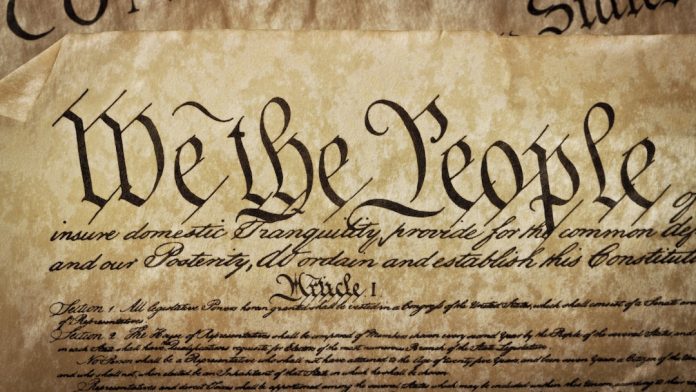 CON States
We the People of
insure domestic Tranquility, provide for the common def
and our Posterity, do ordain and establish this Constitut
Article. I.
Section. 1. All legislative Powers herein granted shall be vested in a Congress of the United States, which shall consist of a Senate and
of Representatives.
Section. 2. The House of Representatives shall be composed of Members chosen every second Year by the People of the several States, and
in each State shall have Qualifications requisite for Electors of the most numerous Branch of the State Legislature.
No Person shall be a Representative who shall not have attained to the Age of twenty five Years, and been seven Years a Citizen of the
and who shall not, when elected, be an Inhabitant of that State in which he shall be chosen.
Representatives and direct Taxes shall be apportioned among the several States which may be included within this